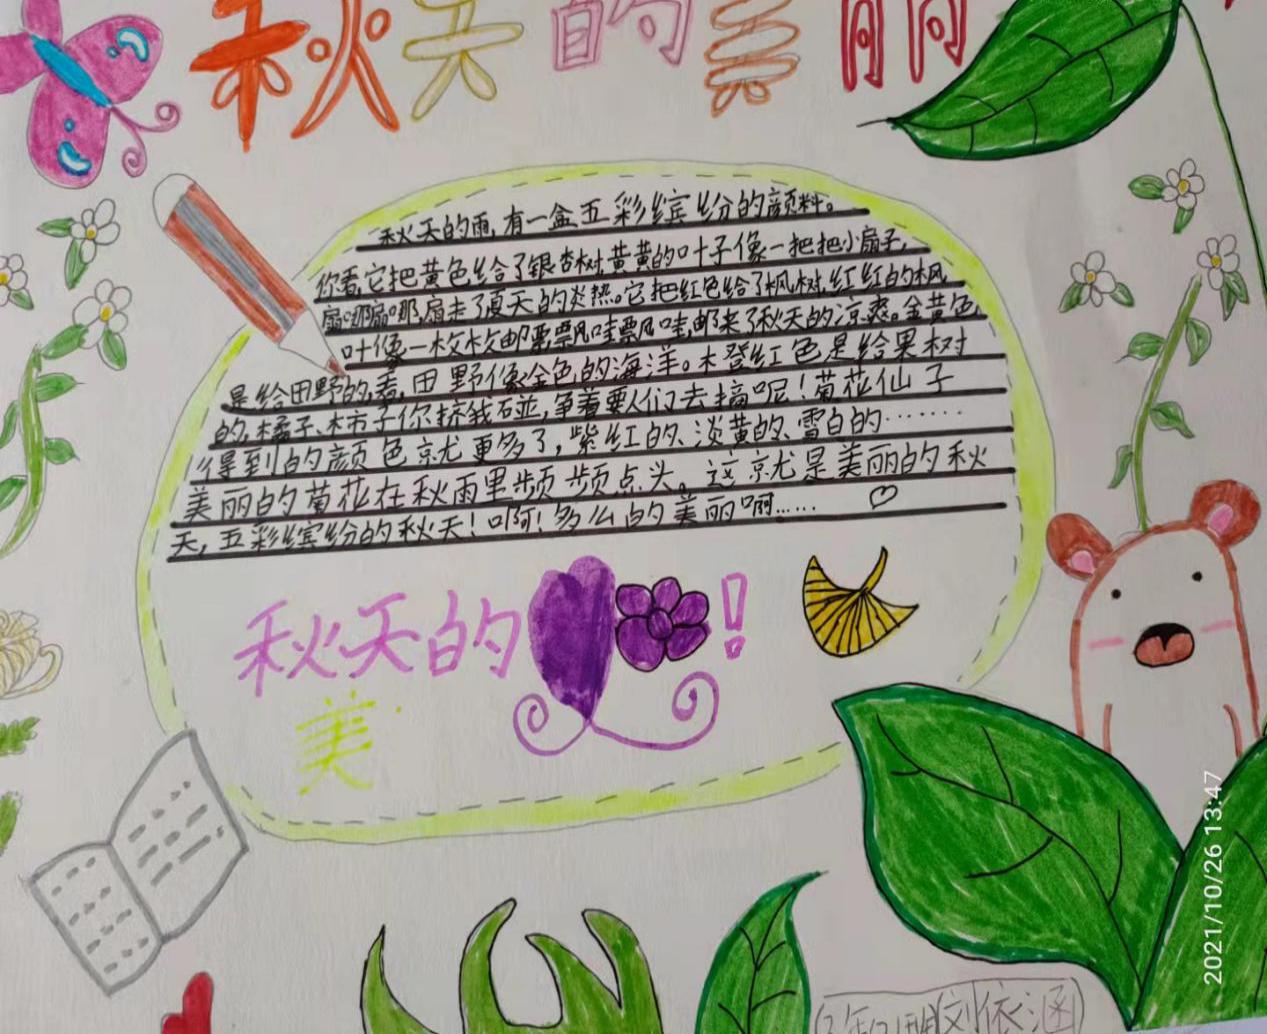 秋天的美丽
秋天的雨,有一盒五彩缤纷的颜料。
你看,它把黄色给了银杏树,黄黄的叶子像一把把小扇子,
扇哪扇哪,扇走了夏天的炎热。它把红色给了枫树,红红的枫
叶像一枚枚邮票,飘哇飘哇,邮来了秋天的凉爽。金黄色
是给田野的,看,田野像金色的海洋。橙红色是给果树
的,橘子、柿子你挤我碰,争着要人们去摘呢!菊花仙子
得到的颜色就更多了,紫红的、淡黄的、雪白的……
美丽的菊花在秋雨里频频点头。这就是美丽的秋
天,五彩缤纷的秋天!啊!多么的美丽啊……
秋天的!
美
刘依涵
2021/10/26 13:47